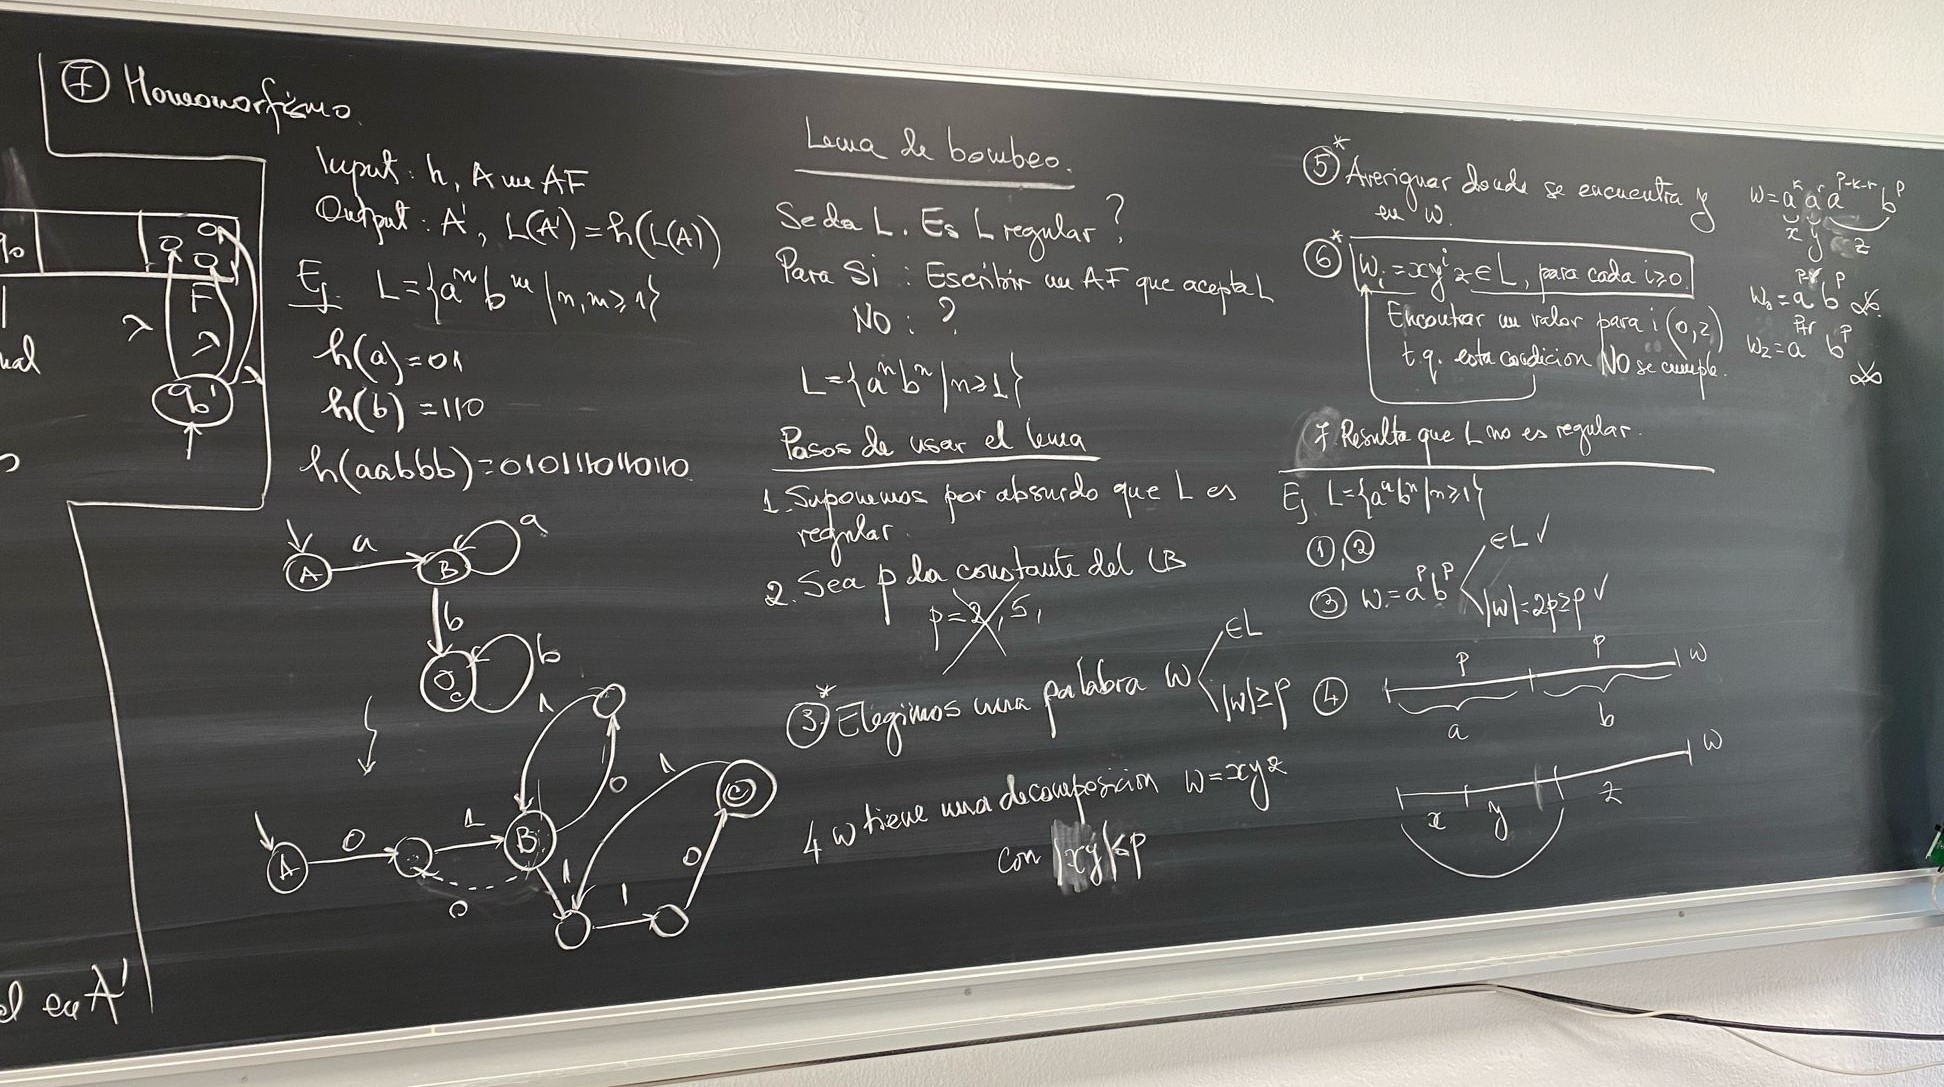 ⑦ Homomorfismo.
Input: h, A un AF
Output: A', L(A')=h(L(A))
Ej. L={aⁿbᵐ | n,m≥1}
h(a)=01
h(b)=110
h(aabbb)=0101110110110
q₀'
F
λ
λ
el en A'
A a B a
b
C b
A 0 1 B
0
1 0
1 1 0 C
1
Lema de bombeo.
Se da L. Es L regular?
Para SI: Escribir un AF que acepta L
NO: ?
L={aⁿbⁿ | n≥1}
Pasos de usar el lema
1. Suponemos por absurdo que L es
regular.
2. Sea p la constante del LB
p=2,5,
③* Elegimos una palabra w ∈L
|w|≥p
4 w tiene una decomposicion w=xyz
con |xy|≤p
⑤* Averiguar donde se encuentra y
en w.
⑥* wᵢ=xyⁱz∈L, para cada i≥0.
Encontrar un valor para i (0,2)
t.q. esta condicion NO se cumple.
7. Resulta que L no es regular.
w=aᵏ aʳ aᵖ⁻ᵏ⁻ʳ bᵖ
x y z
w₀=aᵖ⁻ʳ bᵖ
w₂=aᵖ⁺ʳ bᵖ
Ej. L={aⁿbⁿ | n≥1}
①,②
③ w=aᵖbᵖ ∈L ✓
|w|=2p≥p ✓
④ p p w
a b
w
x y z